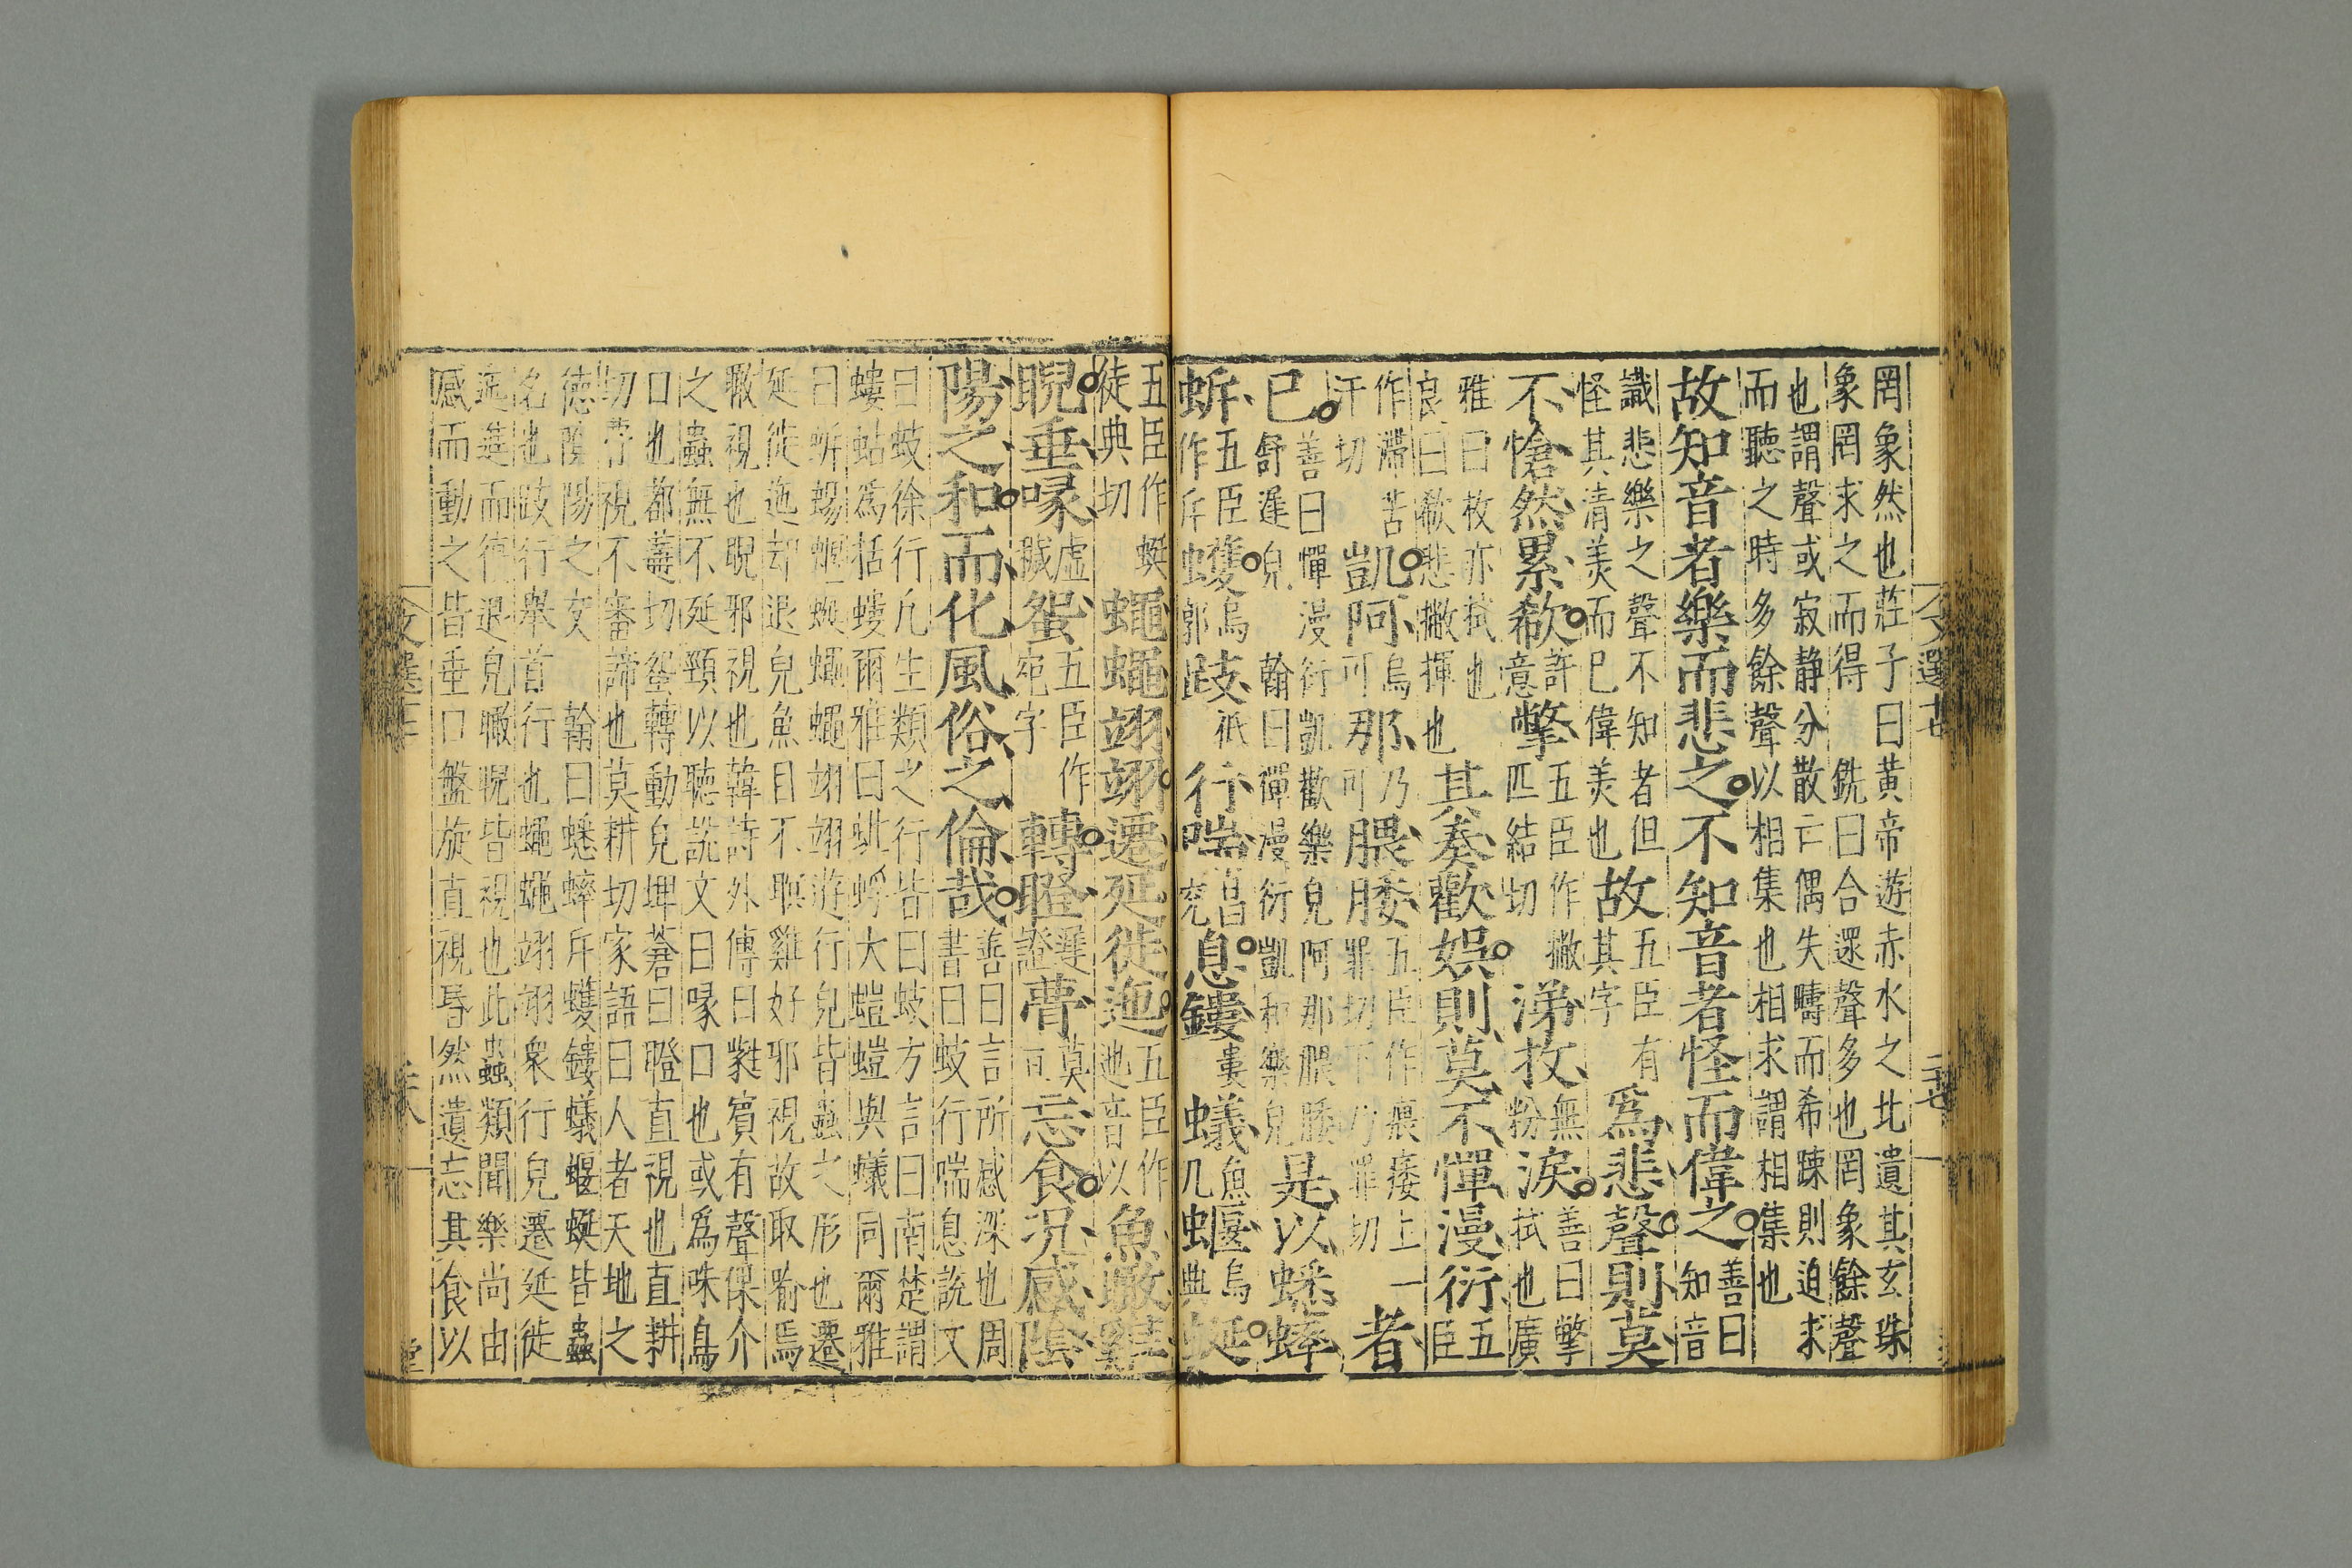 罔象然也莊子曰黄帝遊赤水之北遺其玄珠
象罔求之而得 銑曰合還聲多也罔象餘聲
也謂聲或寂静分散亡偶失疇而希踈則迫求
而聽之時多餘聲以相集也相求謂相集也
故知音者樂而悲之不知音者怪而偉之善曰知音
識悲樂之聲不知者但
怪其清美而已偉美也
故五臣有其字爲悲聲則莫
不愴然累欷許意擎五臣作撇匹結切涕抆無粉淚善曰擎拭也廣
雅曰抆亦拭也
良曰欷悲撇揮也
其奏歡娱則莫不憚漫衍五臣
作滯苦汗切凱阿烏可那乃可腲腇五臣作㾯痿上一罪切下乃罪切者
已善曰憚漫衍凱歡樂皃阿那腲腇舒遲皃 翰曰憚漫衍凱和樂皃是以蟋蟀
蚸五臣作斥蠖烏郭蚑祇行喘昌兖息鏤婁蟻魚几蝘烏典蜒
五臣作蜓徒典切蠅蠅翊翊遷延徙迤五臣作迆音以魚瞰雞
睨垂喙虛穢蜿五臣作宛字轉瞪澄證瞢莫亘忘食况感陰
陽之和而化風俗之倫哉善曰言所感深也周書曰蚑行喘息說文
曰蚑徐行凡生類之行皆曰蚑方言曰南楚謂
螻蛄爲括螻爾雅曰蚍蜉大螘螘與蟻同爾雅
曰蚸蜴蝘蜓蠅蠅翊翊遊行皃皆蟲之形也遷
延徙迤却退皃魚目不瞑雞好邪視故取喻焉
瞰視也睨邪視也韓詩外傳曰蕤賓有聲倮介
之蟲無不延頸以聽說文曰喙口也或爲咮鳥
口也都蓋切蜿轉動皃埤蒼曰瞪直視也直耕
切瞢視不審諦也莫耕切家語曰人者天地之
徳陰陽之交 翰曰蟋蟀斥蠖鏤蟻蝘蜓皆蟲
名也蚑行舉首行也蠅蠅翊翊衆行皃遷延徙
迤進而徳退皃瞰睨皆視也此蟲類聞樂尚由
感而動之皆垂口盤旋直視辱然遺忘其食以